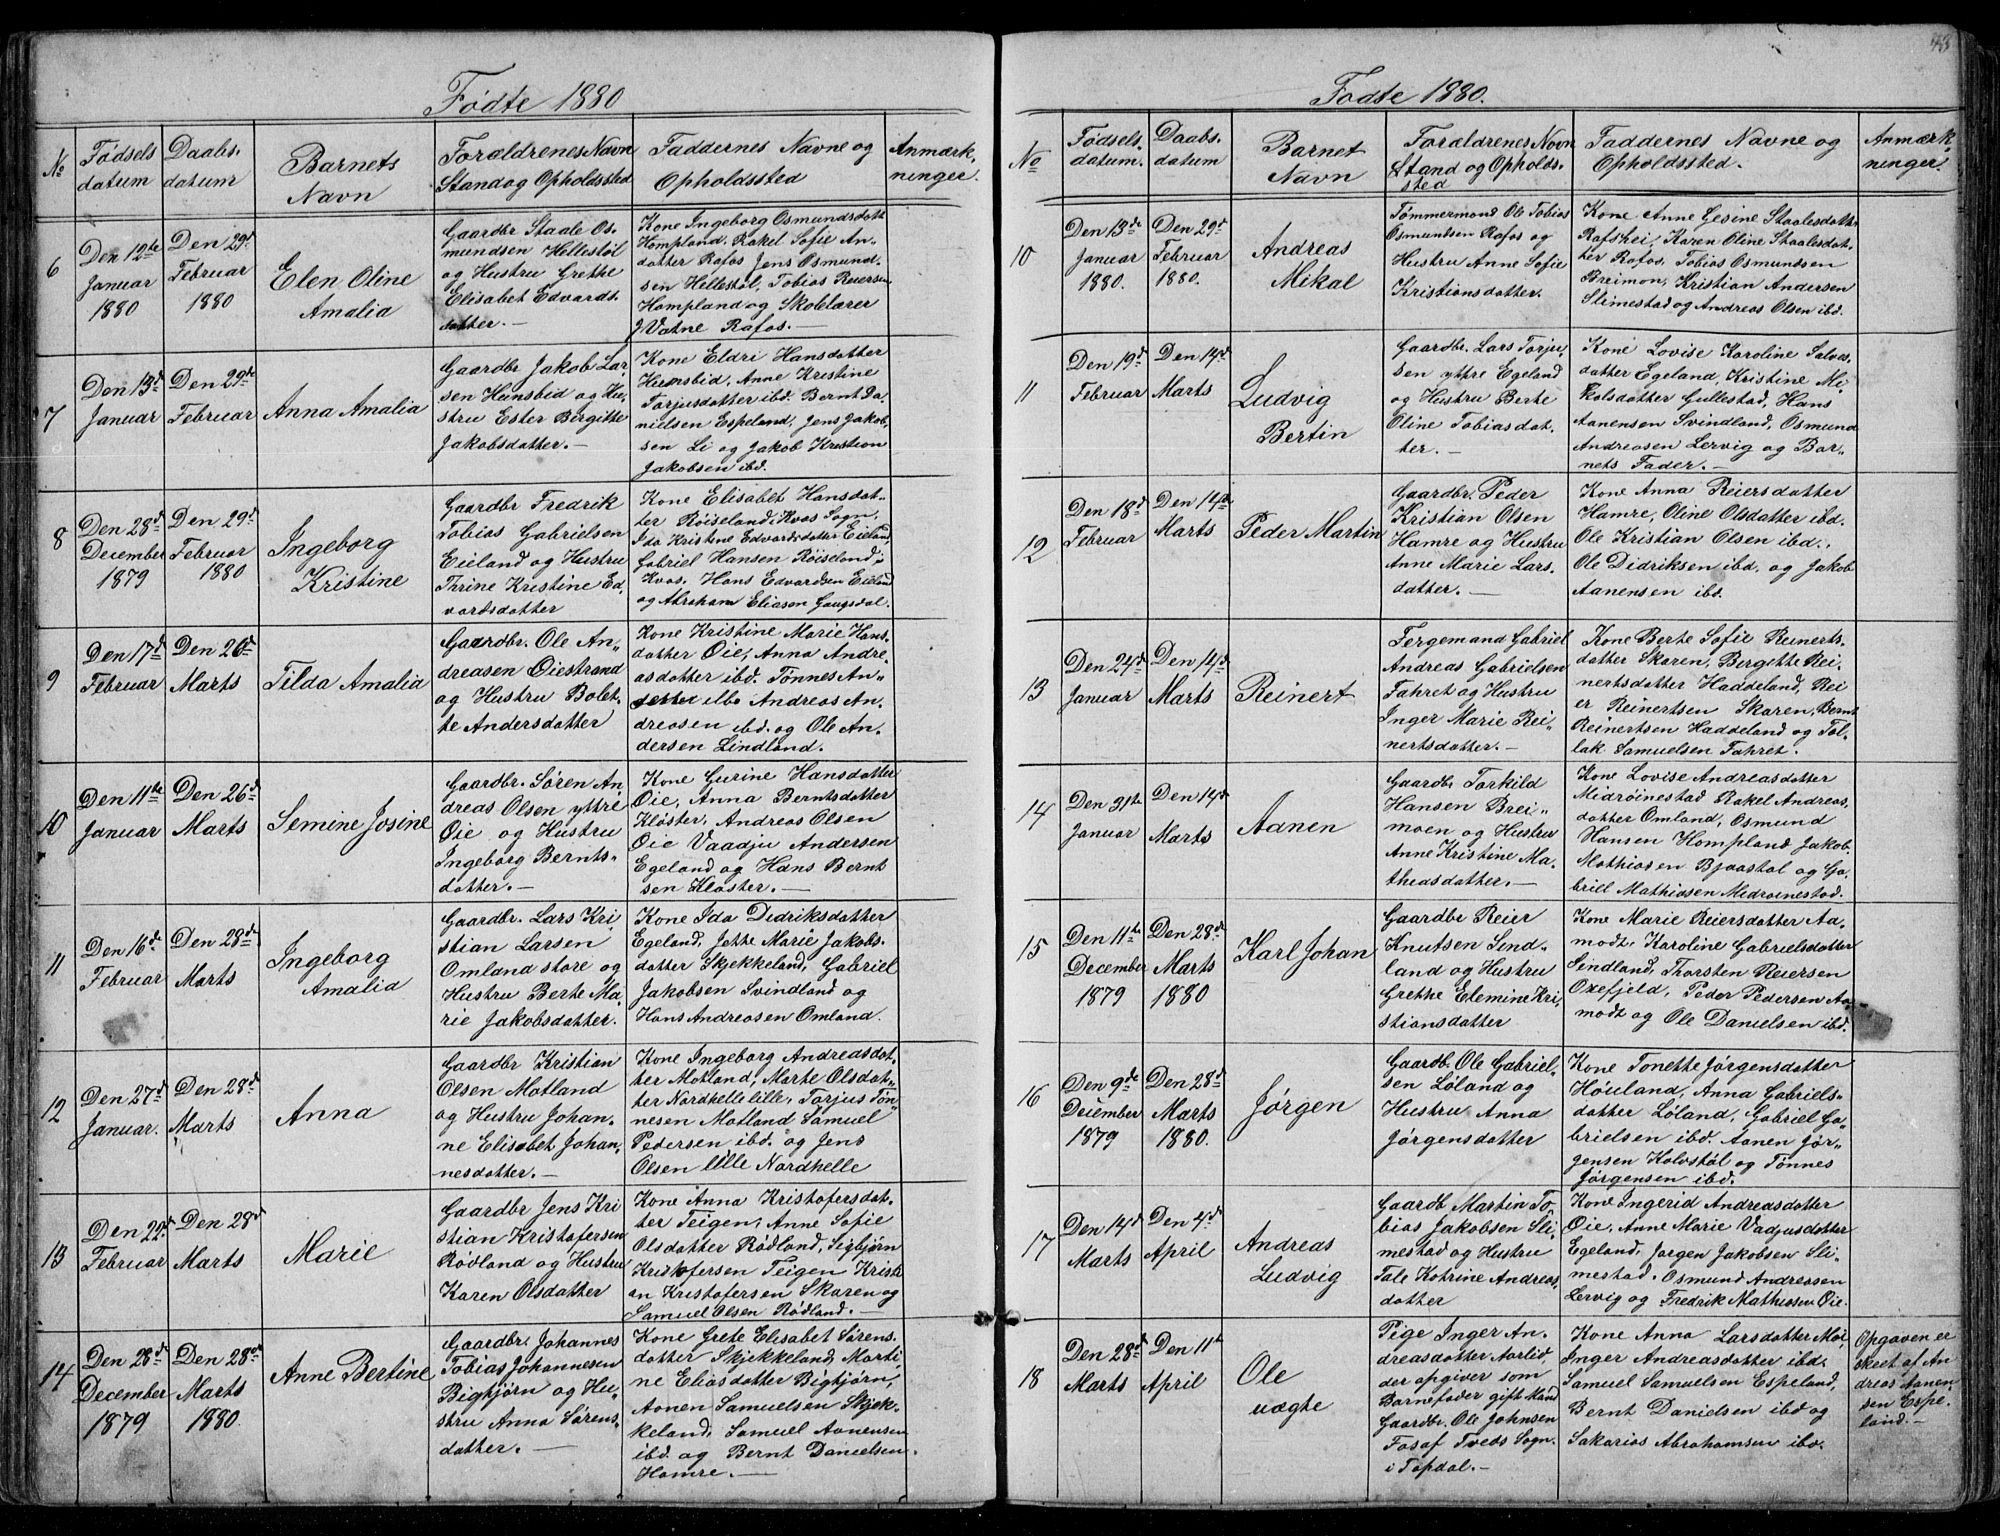 Fødte 1880
No
Fødsels
datum
Daabs-
datum
Barnets
Navn
ForældrenesNavn
Stand og Opholdssted
Faddernes Navne og
Opholdssted
Anmærk,
ninger.
6
Den 12te
Januar
1880
Den 29d
Februar
1880
Elen Oline
Amalia
Gaardbr Staale Os-
mundsen Hellestøl
og Hustru Grethe
Elisabet Edvards-
datter. —
Kone Ingeborg Osmundsdatt
Hompland. Rakel Sofie An-
datter Rafos Jens Osmund-
sen Hellestøl, Tobias Reiersen
Hompland og Skolelærer
J Vatne Rafos. —
7
Den 13d
Januar
Den 29de
Februar
Anna Amalia
Gaardbr Jakob Lar-
sen Hunsbid og Hu-
stru Ester Bergitte
Jakobsdatter. —
Kone Eldri Hansdatter
Hunsbid, Anne Kristine
Torjusdatter ibd. Bernt Da-
nielsen Espeland, Jens Jakob,
sen Li og Jakob Kristian
Jakobsen ibd.
8
Den 28d
December
1879
Den 29d
Februar
1880
Ingeborg
Kristine
Gaardbr Fredrik
Tobias Gabrielsen
Eieland og Hustru
Thrine Kristine Ed,
vardsdatter
Kone Elisabet Hansdat-
ter Røiseland, Kvas Sogn,
Ida Kristine Edvardsdatter Eieland,
Gabriel Hansen Røiseland,
Kvas. Hans Edvardsen Eieland
og Abraham Eliasen Gaugsdal.
9
Den 17d
Februar
Den 26d
Marts
Tilda Amalia
Gaardbr. Ole An-
dreasen Øiestrand
og Hustru Bolet-
te Andersdatter
Kone Kristine Marie Hans-
datter Øie, Anna Andre-
asdatter ibd. Tønnes An-
Andreas An-
dreasen ibd. og Ole An-
dersen Lindland.
10
Den 11te
Januar
Den 26d
Marts
Semine Josine
Gaardbr. Søren An
dreas Olsen yttre
Øie og Hustru
Ingeborg Bernts-
datter. —
Kone Gurine Hansdatter
Øie, Anna Berntsdatter
Kløster, Andreas Olsen
Øie Vaadju Andersen
Egeland og Hans Bernt
sen Kløster. —
11
Den 16d
Februar
Den 28d
Marts
Ingeborg
Amalia
Gaardbr. Lars Kri-
stian Larsen
Omland store og
Hustru Berte Ma-
rie Jakobsdatter.
Kone Ida Didriksdatter
Egeland, Jette Marie Jakobs-
datter Skjekkeland, Gabriel
Jakobsen Svindland og
Hans Andreasen Omland.
12
Den 27d
Januar.
Den 28d
Marts
Anna
Gaardbr Kristian
Olsen Motland
og Hustru Johan-
ne Elisabet Johan,
nesdatter. —
Kone Ingeborg Andreasdat-
ter Motland, Marte Olsdat-
ter Nordhelle lille, Torjus Tøn-
nesen Motland Samuel
Pedersen ibd. og Jens
Olsen lille Nordhelle
13
Den 22d
Februar
Den 28d
Marts
Marie
Gaardbr Jens Kri
stian Kristofersen
Rødland og Hustru
Karen Olsdatter
Kone Anna Kristofersdat-
ter Teigen, Anne Sofie
Olsdatter Rødland, Sigbjørn
Kristofersen Teigen Kristi
an Kristofersen Skaren og
Samuel Olsen Rødland. —
14
Den 28d
December
1879
Den 28d
Marts
1880.
Anne Bertine
Gaardbr. Johannes
Tobias Johannesen
Bighjørn og Hu-
stru Anna Sørens-
datter. —
Kone Grete Elisabet Sørens-
datter Skjekkeland, Marti-
ne Eliasdatter Bighjørn,
Aanen Samuelsen Skjek-
keland, Samuel Aanensen
ibd. og Bernt Danielsen
Homre. —
43
Fødte 1880.
No
Fødsels-
datum.
Daabs-
datum
Barnet
Navn
Forældrenes Navn
Stand og Opholds-
sted
Faddernes Navne og
Opholdssted.
Anmærk-
ninger.
10
Den 13de
Januar
1880.
Den 29d
Februar
1880.
Andreas
Mikal
Tømmermand Ole Tobias
Osmundsen Rafos og
Hustru Anne Sofie
Kristiansdatter.
Kone Anne Gesine Staalesdatter
Rafshei, Karen Oline Staalesdat-
ter Rafos, Tobias Osmundsen
Breimon, Kristian Andersen
Slimestad og Andreas Olsen ibd.
11
Den 19d
Februar
Den 14d
Marts
Ludvig
Bertin
Gaardbr. Lars Torju
sen yttre Egeland
og Hustru Berte
Oline Tobiasdat-
ter. —
Kone Lovise Karoline Salves-
datter Egeland, Kristine Ni-
kolsdatter Gullestad, Hans
Aanensen Svindland, Osmund
Andreasen Lervig og Bar-
nets Fader. —
12
Den 18d
Februar
Den 14de
Marts
Peder Martin
Gaardbr. Peder
Kristian Olsen
Hamre og Hustru
Anne Marie Lars-
datter. —
Kone Anna Reiersdatter
Hamre, Oline Olsdatter ibd.
Ole Kristian Olsen ibd.,
Ole Didriksen ibd. og Jakob
Aanensen ibd.
13
Den 24d
Januar
Den 14d
Marts
Reinert
Fergemand Gabriel
Andreas Gabrielsen
Fahret og Hustru
Inger Marie Rei-
nertsdatter. —
Kone Berte Sofie Reinerts-
datter Skaren, Bergette Rei-
nertsdatter Haddeland, Rei
er Reinertsen Skaren, Bernt
Reinertsen Haddeland og Tol-
lak Samuelsen Fahret.
14
Den 31te
Januar
Den 14d
Marts
Aanen
Gaardbr Torkild
Hansen Brei-
moen og Hustru
Anne Kristine Ma-
theasdatter. —
Kone Lovise Andreasdatter
Midrøinestad Rakel Andreas-
datter Omland, Osmund
Hansen Hompland Jakob
Mathiasen Bjaastal og Ga-
briel Mathiasen Midrøinestad.
15
Den 11te
December
1879
Den 28d
Marts
1880
Karl Johan
Gaardbr Reier
Knutsen Sind-
land og Hustru
Grethe Elemine Kri-
stiansdatter
Kone Marie Reiersdatter Aa-
modt, Karoline Gabrielsdatter
Sindland, Thorsten Reiersen
Oxefjeld, Peder Pedersen Aa-
modt og Ole Danielsen ibd.
16
Den 9de
December
1879
Den 28d
Marts
1880.
Jørgen
Gaardb. Ole Gabriel-
sen Løland og
Hustru Anna
Jørgensdatter
Kone Tonette Jørgensdatter
Høuland, Anna Gabriels-
datter Løland, Gabriel Ga-
brielsen ibd. Aanen Jør-
gensen Kolvstøl og Tønnes
Jørgensen ibd.
17
Den 14d
Marts
Den 4d
April
Andreas
Ludvig
Gaardb Martin To-
bias Jakobsen Sli-
mestad og Hustru
Tale Katrine Andreas
datter
Kone Ingerid Andreasdatter
Øie, Anne Marie Vadjusdatter
Egeland, Jørgen Jakobsen Sli-
mestad, Osmund Andreasen
Lervig og Fredrik Mathiasen Øie.
18
Den 28d
Marts
Den 11te
April
Ole
uægte
Pige Inger An-
dreasdatter Aarlid,
der opgiver som
Barnefader gift Mand
Gaardbr. Ole Johnsen
Fosaf Tveds Sogn.
i Topdal. —
Kone Anna Larsdatter Moi,
Inger Andreasdatter ibd.
Samuel Samuelsen Espeland,
Bernt Danielsen ibd og
Sakarias Abrahamsen ibd.
Opgaven er
skret af An
dreas Aanen-
sen Espe-
land. —